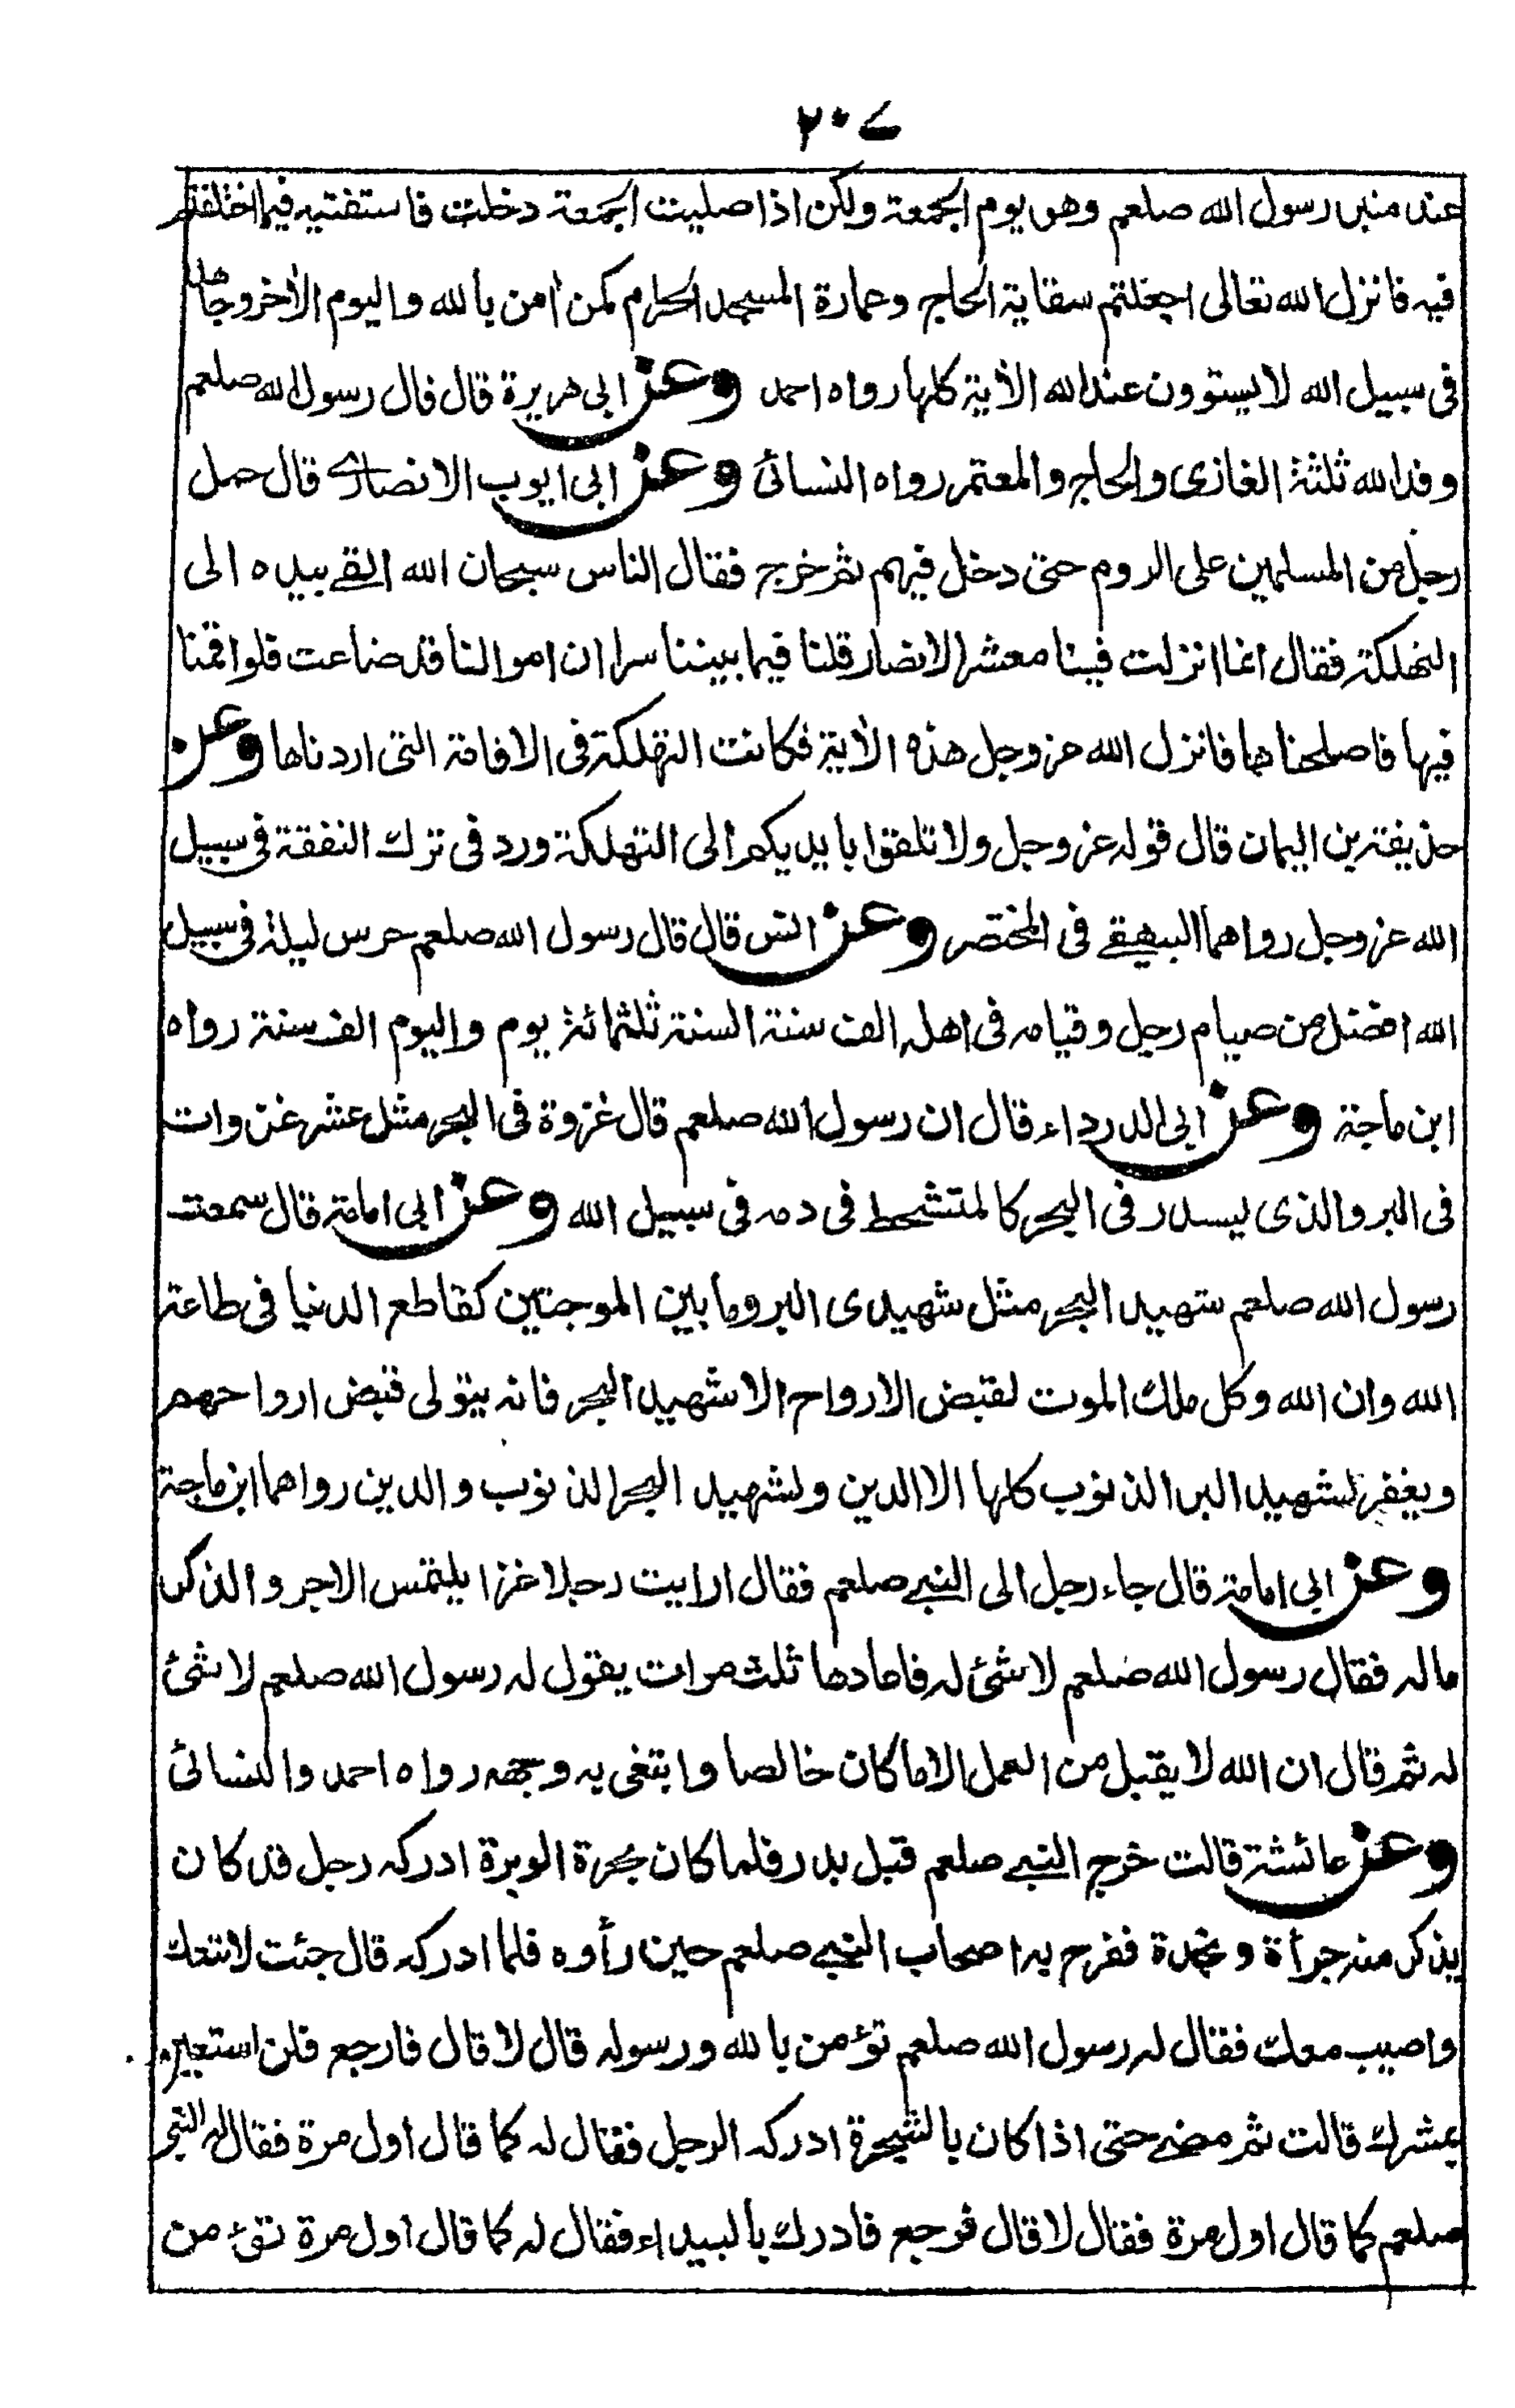 ٢٠٧
عند منبر رسول الله صلعم وهو يوم الجمعة ولكن اذا صليت الجمعة دخلت فاستفتيه فيما اختلفتم
فيه فانزل الله تعالى اجعلتم سقاية الحاج وعمارة المسجد الحرام كمن أمن بالله واليوم الأخر وجاهد
فى سبيل الله لا يستوون عند الله الأية كلها رواه احمد وعن ابى هريرة قال قال رسول الله صلعم
وفد الله ثلثة الغازى والحاج والمعتمر رواه النسائى وعن ابى ايوب الانصارى قال حمل
رجل من المسلمين على الروم حتى دخل فيهم ثم خرج فقال الناس سبحان الله القى بيده الى
التهلكة فقال انما انزلت فينا معشر الانصار قلنا فيما بيننا سرا ان اموالنا قد ضاعت فلو اقمنا
فيها فاصلحناها فانزل الله عز وجل هذه الأية فكانت التهلكة فى الاقامة التى اردناها وعن
حذيفة بن اليمان قال قوله عز وجل ولا تلقوا بايديكم الى التهلكة ورد فى ترك النفقة فى سبيل
الله عز وجل رواهما البيهقى فى المختصر وعن انس قال قال رسول الله صلعم حرس ليلة فى سبيل
الله افضل من صيام رجل وقيامه فى اهله الف سنة السنة ثلثمائة يوم واليوم الف سنة رواه
ابن ماجة وعن ابى الدرداء قال ان رسول الله صلعم قال غزوة فى البحر مثل عشر غزوات
فى البر والذى يسدر فى البحر كالمتشحط فى دمه فى سبيل الله وعن ابى امامة قال سمعت
رسول الله صلعم شهيد البحر مثل شهيدى البر وما بين الموجتين كقاطع الدنيا فى طاعة
الله وان الله وكل ملك الموت لقبض الارواح الا شهيد البحر فانه يتولى قبض ارواحهم
ويغفر لشهيد البر الذنوب كلها الا الدين ولشهيد البحر الذنوب والدين رواهما ابن ماجة
وعن ابى امامة قال جاء رجل الى النبى صلعم فقال ارايت رجلا غزا يلتمس الاجر والذكر
ماله فقال رسول الله صلعم لا شئ له فاعادها ثلث مرات يقول له رسول الله صلعم لا شئ
له ثم قال ان الله لا يقبل من العمل الا ما كان خالصا وابتغى به وجهه رواه احمد والنسائى
وعن عائشة قالت خرج النبى صلعم قبل بدر فلما كان بحرة الوبرة ادركه رجل قد كان
يذكر منه جرأة ونجدة ففرح به اصحاب النبى صلعم حين رأوه فلما ادركه قال جئت لاتبعك
واصيب معك فقال له رسول الله صلعم تؤمن بالله ورسوله قال لا قال فارجع فلن استعين
بمشرك قالت ثم مضى حتى اذا كان بالشجرة ادركه الرجل فقال له كما قال اول مرة فقال له النبى
صلعم كما قال اول مرة فقال لا قال فرجع فادرك بالبيداء فقال له كما قال اول مرة تؤمن